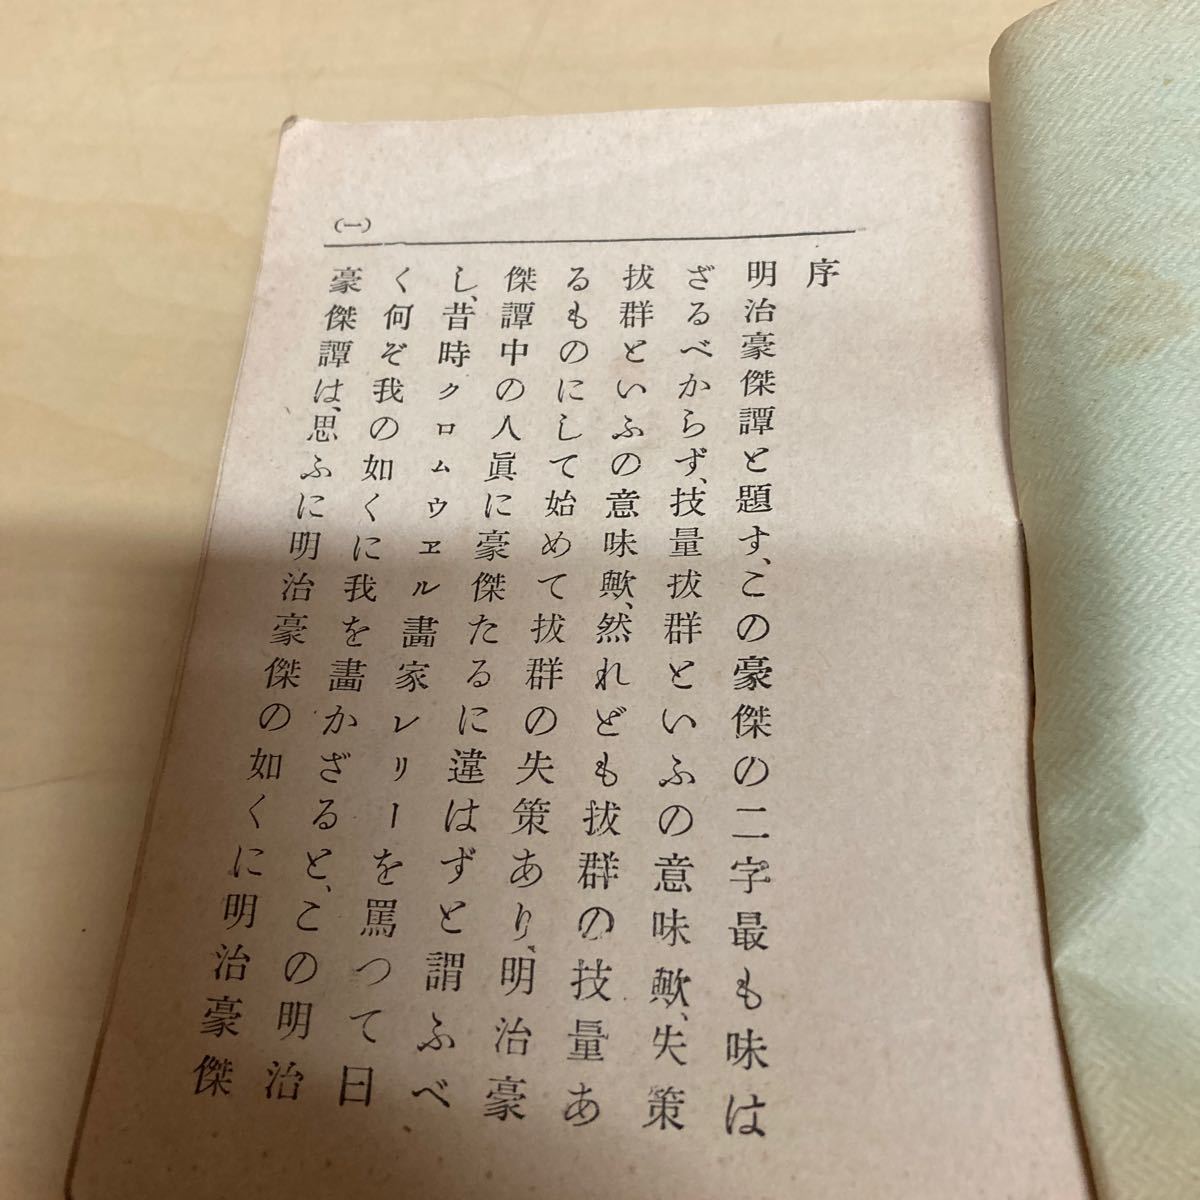 序
明治豪傑譚と題す、この豪傑の二字最も味は
ざるべからず、技量抜群といふの意味歟、失策
抜群といふの意味歟、然れども抜群の技量あ
るものにして始めて抜群の失策あり、明治豪
傑譚中の人眞に豪傑たるに違はずと謂ふべ
し、昔時クロムウヱル畫家レリーを罵つて曰
く何ぞ我の如くに我を畫かざると、この明治
豪傑譚は、思ふに明治豪傑の如くに明治豪傑
(一)